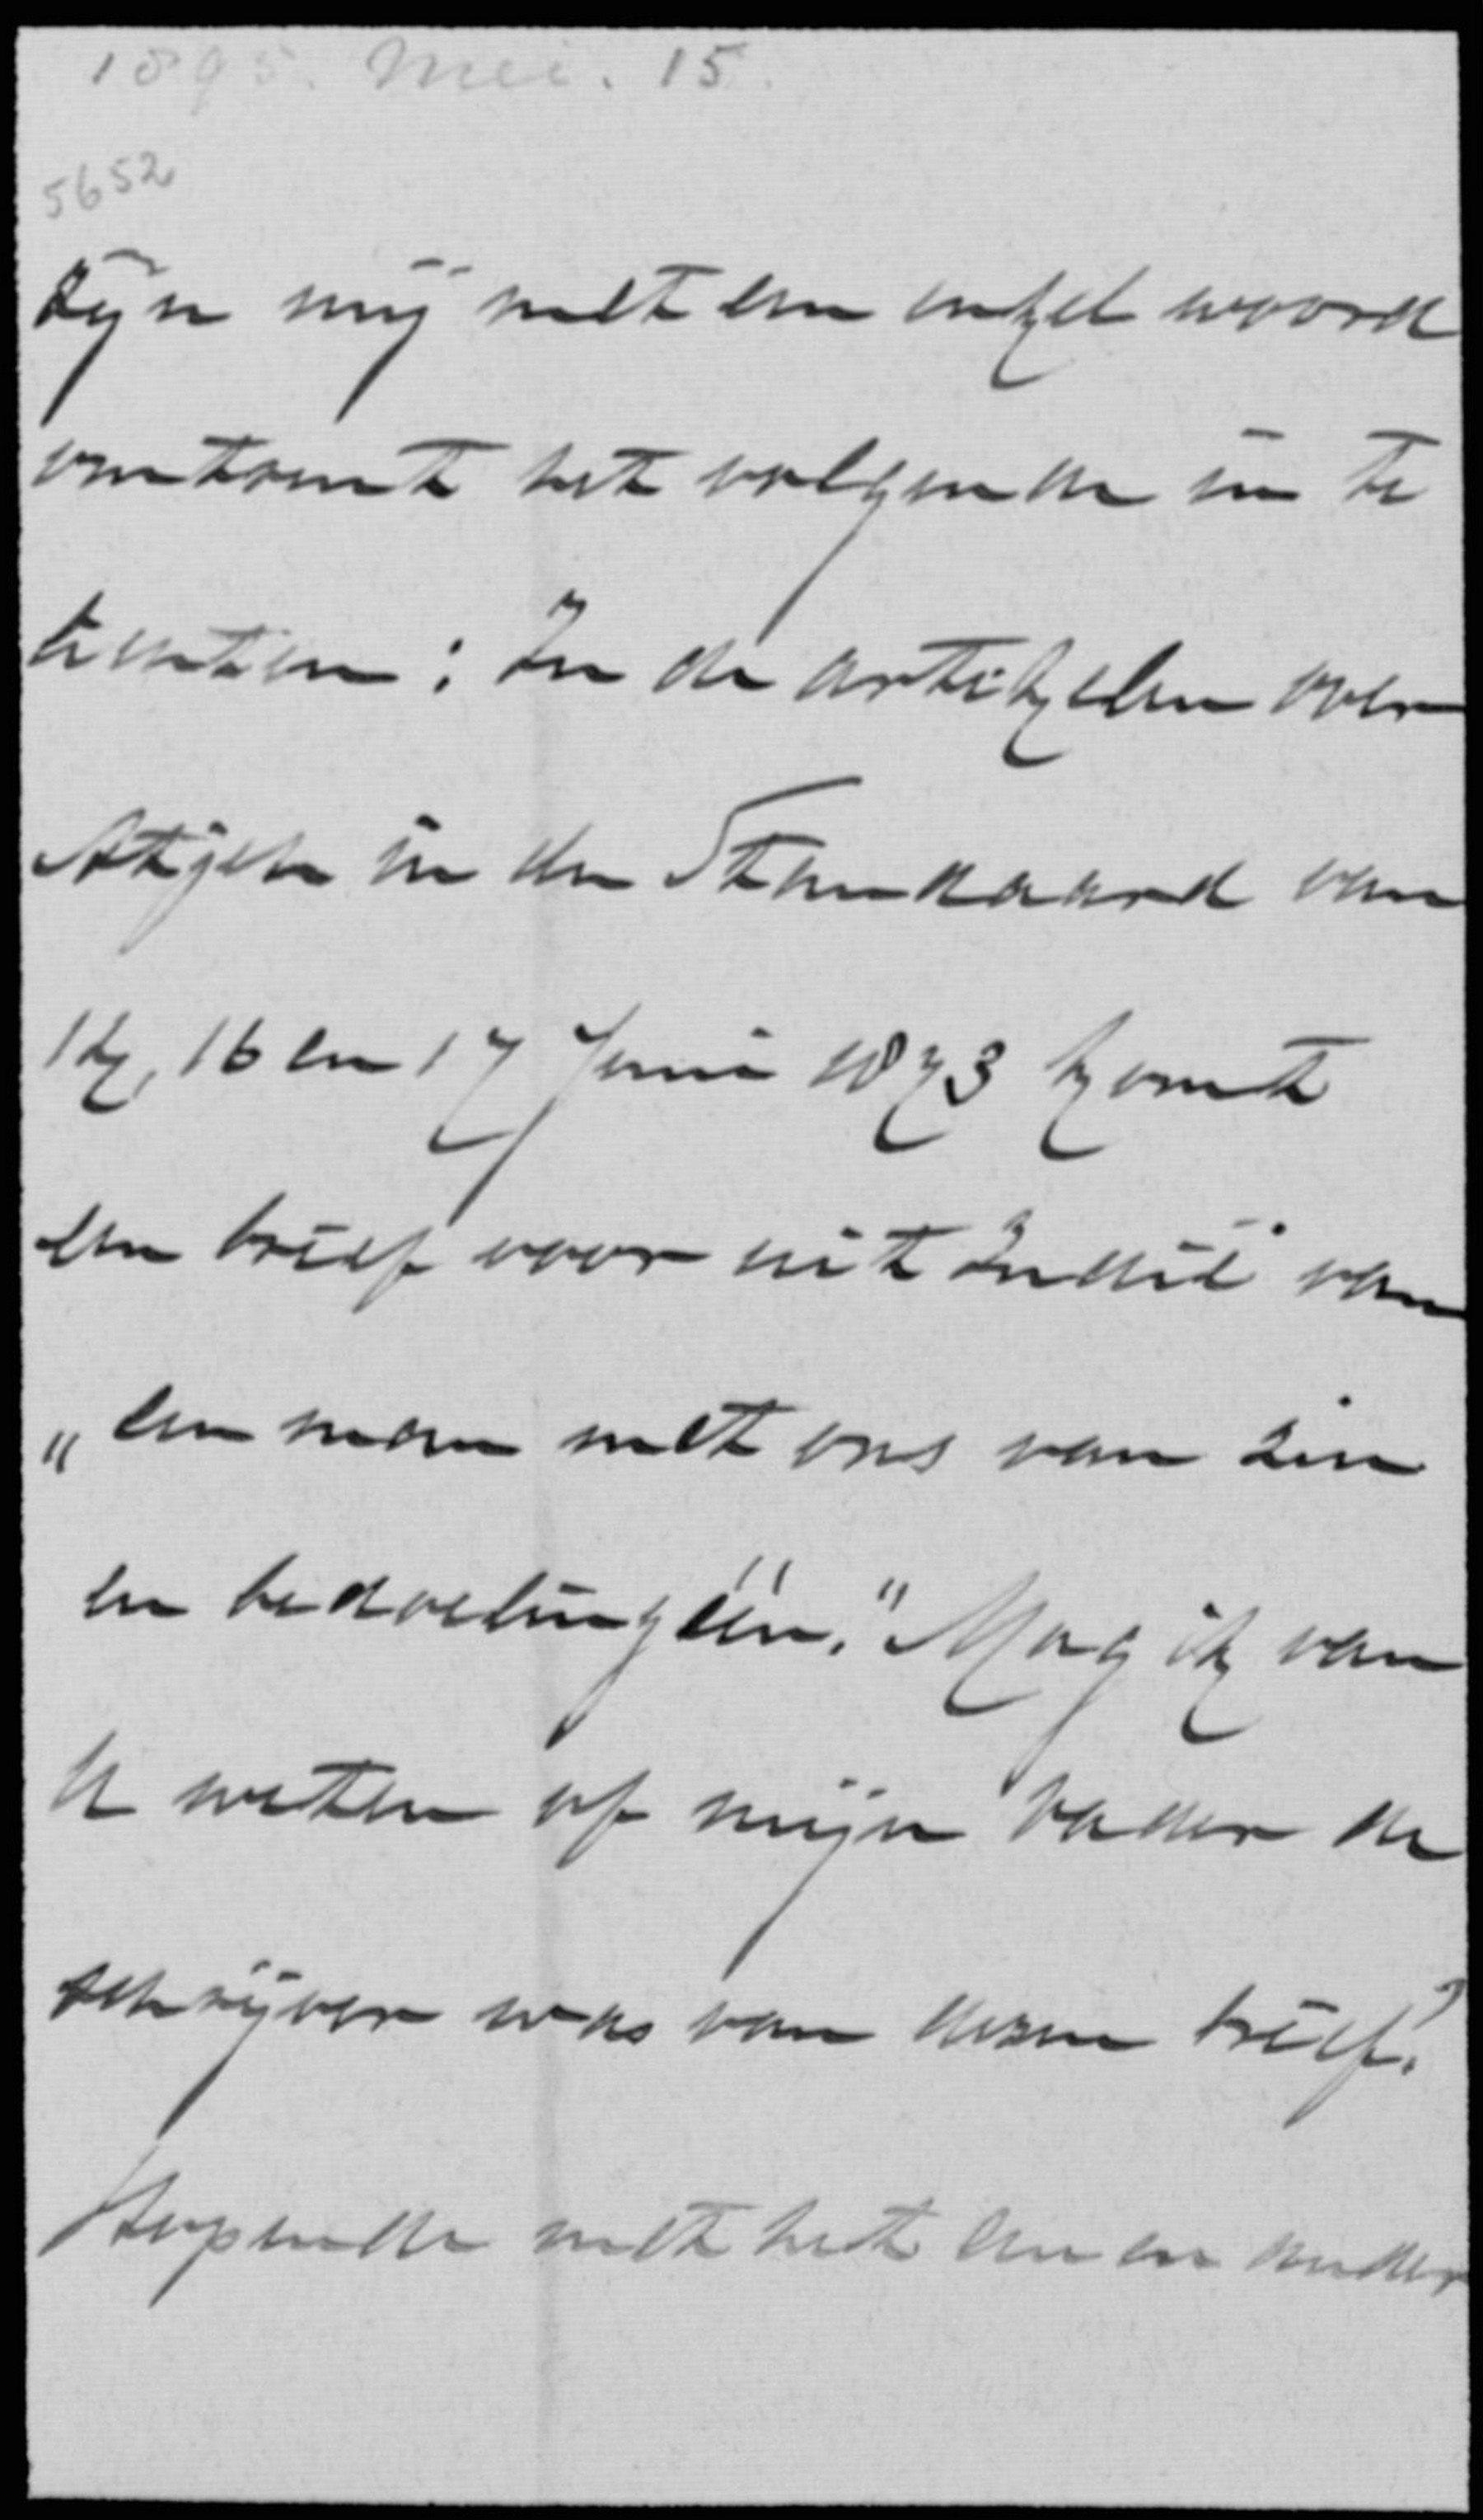 1895. Mei. 15.
5652
zijn mij met een enkel woord
omtrent het volgende in te
lichten: In de artikelen over
Atjeh in den Standaard van
14, 16 en 17 Juni 1873 komt
een brief voor uit Indië van
„een man met ons van zin
en bedoeling één." Mag ik van
U weten of mijn vader de
schrijver was van dezen brief?
Hopende met het een en ander